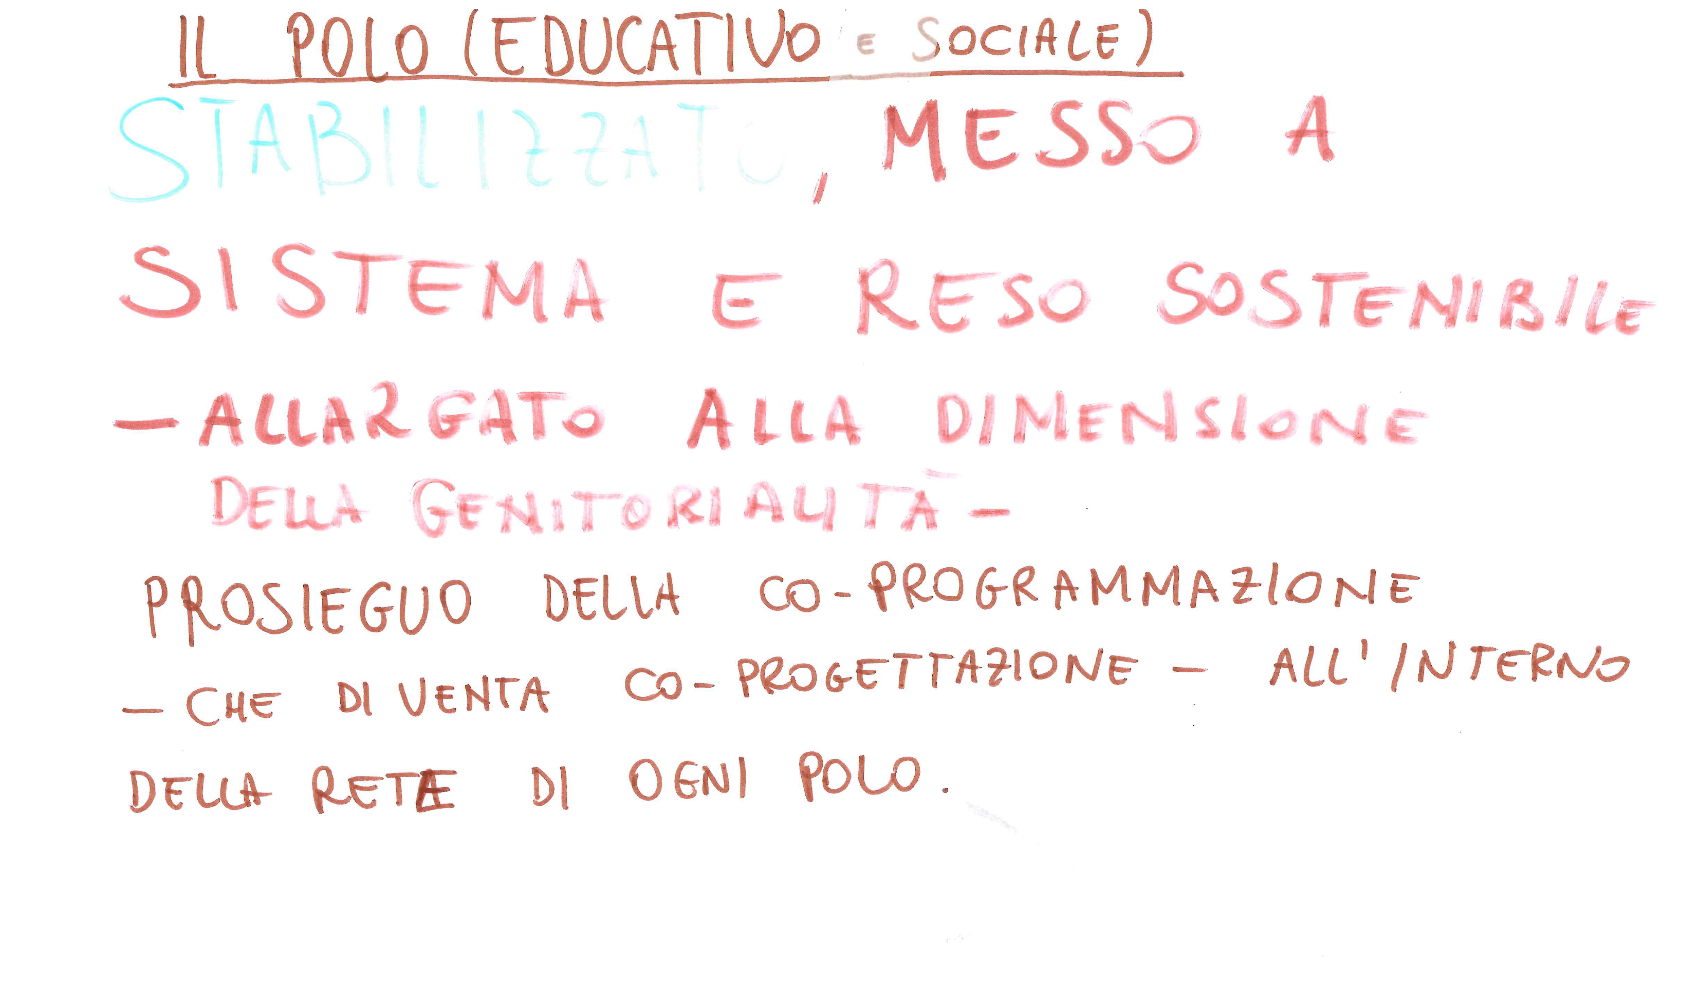 IL POLO (EDUCATIVO E SOCIALE)
STABILIZZATO, MESSO A
SISTEMA E RESO SOSTENIBILE
— ALLARGATO ALLA DIMENSIONE
DELLA GENITORIALITÀ —
PROSIEGUO DELLA CO-PROGRAMMAZIONE
— CHE DIVENTA CO-PROGETTAZIONE — ALL'INTERNO
DELLA RETE DI OGNI POLO.